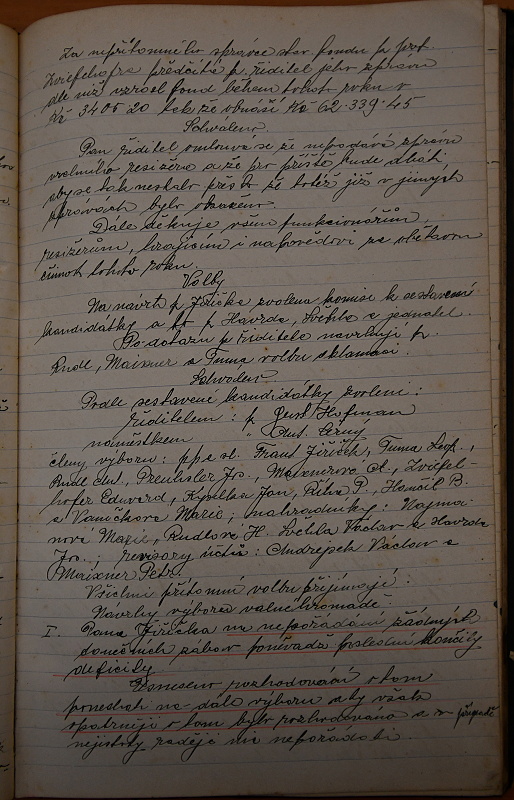 Za nepřítomného správce stav. fondu p. prof.
Zviefelhofra předčítá p. ředitel jeho zprávu
dle níž vzrost fond během tohoto roku o
Kč 3405·20 tak že obnáší Kč 62·339·45
Schváleno.
Pan ředitel omlouvá se že nepodává zprávu
vrchního režiséra a že pro příště bude dbáti,
aby se tak nestalo přes to že totéž již v jiných
zprávách bylo obsaženo.
Dále děkuje všem funkcionářům,
režisérům, hrajícím i nápovědovi za obětavou
činnost tohoto roku.
Volby
Na návrh p. Jiřička zvolena komise k sestavení
kandidátky a to p. Havrda, Švehla a jednatel.
Po dotazu p. ředitele navrhují p.
Rudl, Maixner a Tuma volbu aklamací.
Schváleno
Podle sestavené kandidátky zvoleni:
ředitelem: p. Hofman
náměstkem " Ant. Černý
členy výboru: pp. a sl. Frant. Jiřiček, Tuma Leop.,
Rudl Ant., Preuhsler Jos., Maixnerova A., Zviefel-
hofer Eduard, Kybelka Jan, Říha P., Hančil B.
a Vaníčkova Marie; náhradníky: Najma-
nova Marie, Rudlova H. Švehla Václav a Havrda
Jos.; revisory účtů: Andrejsek Václav a
Maixner Petr.
Všichni přítomní volbu přijímají.
Návrhy výboru valné hromadě:
I. Pana Jiřička na nepořádání žádných
tanečních zábav poněvadž poslední končily
deficity
Usneseno rozhodování o tom
ponechati na dále výboru aby však
opatrněji o tom bylo rozhodováno a v případě
nejistoty raději nic nepořádati.